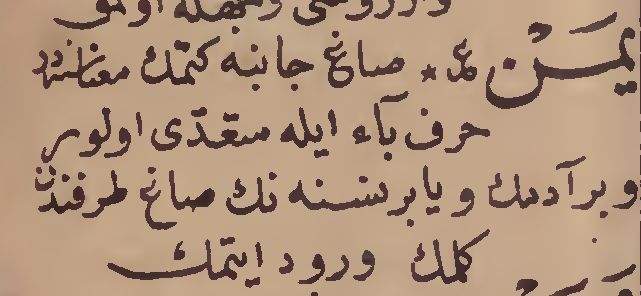 یَمَنْ ع * صاغ جانبه كتمك معناسنه در
حرف بآء ایله متعدّی اولور
و بر آدمك و یا بر نسنه نك صاغ طرفندن
كلمك ورود ایتمك